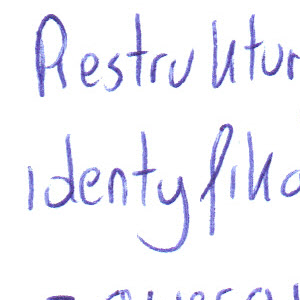 Restruktur
identyfika